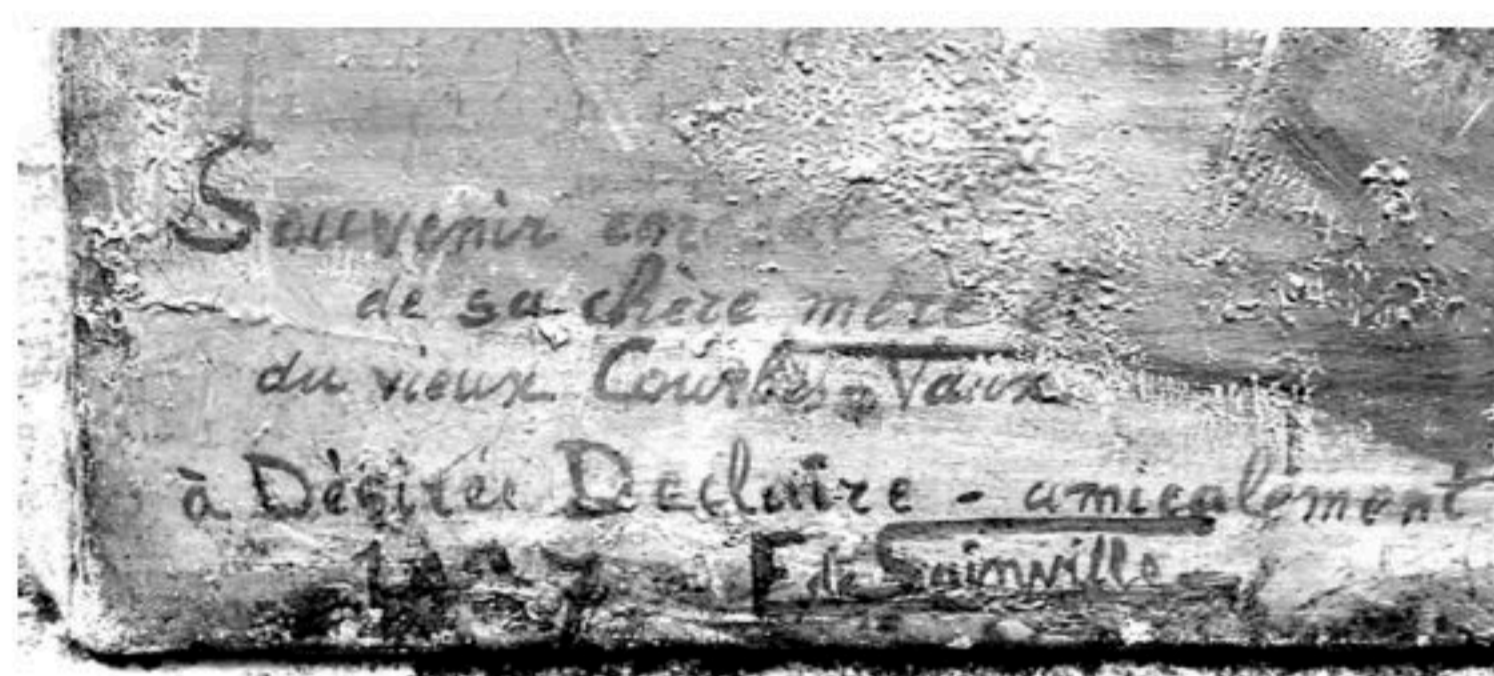 Souvenir
de sa chère mère
du vieux Courbes-Vaux
à Désirée Declaire - amicalement
F de Sainville